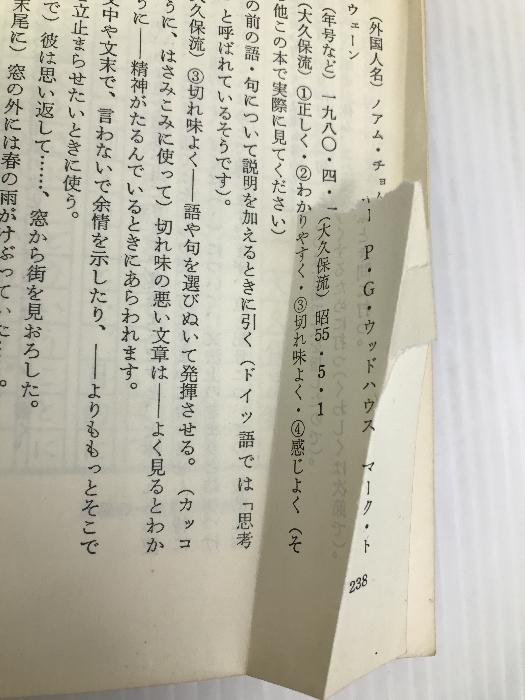 （外国人名）ノアム・チョム
P・G・ウッドハウス　マーク・ト
ウェーン
（年号など）一九八〇・四・一（大久保流）昭55・5・1
（大久保流）①正しく・②わかりやすく・③切れ味よく・④感じよく（そ
の他この本で実際に見てください）
の前の語・句について説明を加えるときに引く（ドイツ語では「思考
と呼ばれているそうです）。
久保流）③切れ味よく――語や句を選びぬいて発揮させる。（カッコ
うに、はさみこみに使って）切れ味の悪い文章は――よく見るとわか
うに――精神がたるんでいるときにあらわれます。
文中や文末で、言わないで余情を示したり、――よりももっとそこで
を立止まらせたいときに使う。
で）彼は思い返して……、窓から街を見おろした。
末尾に）窓の外には春の雨がけぶっていた…。
238